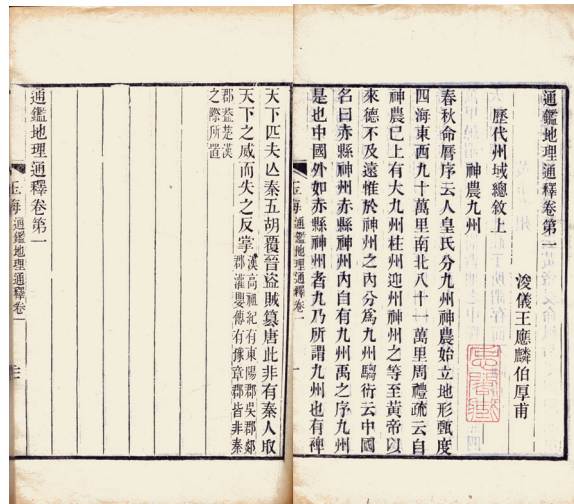 通鑑地理通釋卷第一
浚儀王應麟伯厚甫
歷代州域總敘上
神農九州
春秋命厤序云人皇氏分九州神農始立地形甄度
四海東西九十萬里南北八十一萬里周禮疏云自
神農已上有大九州桂州迎州神州之等至黃帝以
來德不及遠惟於神州之內分爲九州騶衍云中國
名曰赤縣神州赤縣神州內自有九州禹之序九州
是也中國外如赤縣神州者九乃所謂九州也有裨
玉海 通鑑地理通釋卷一 一
天下匹夫亾秦五胡覆晉盜賊篡唐此非有秦人取
天下之威而失之反掌
漢高祖紀有東陽郡吳郡郯
郡灌嬰傳有豫章郡皆非秦
郡蓋楚漢
之際所置
通鑑地理通釋卷第一
玉海 通鑑地理通釋卷一